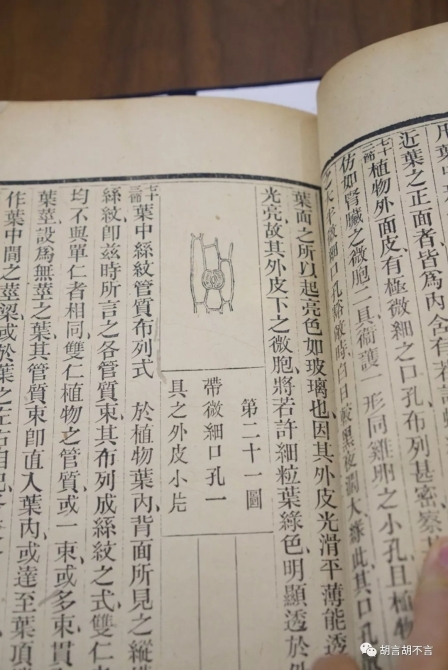 近葉之正面者皆爲內含有若許
七十二節植物外面皮有極微細之口孔布列甚密
仿如腎臟之微胞二且衛護一形同雞卵之小孔且植物
微細口孔 時白日較黑夜濶大 此其口孔
葉面之所以起亮色如玻璃也因其外皮光滑平薄能透
光亮故其外皮下之微胞將若許細粒葉綠色明顯透於外
第二十一圖
帶微細口孔一
具之外皮小片
七十三節葉中絲紋管質布列式 於植物葉內背面所見之縱橫
絲紋卽茲時所言之各管質束其布列成絲紋之式雙仁
均不與單仁者相同雙仁植物之管質或一束或多束貫
葉莖設爲無莖之葉其管質束卽直入葉內或達至葉項
作葉中間之莖梁或於葉之左右相
胡言胡不言